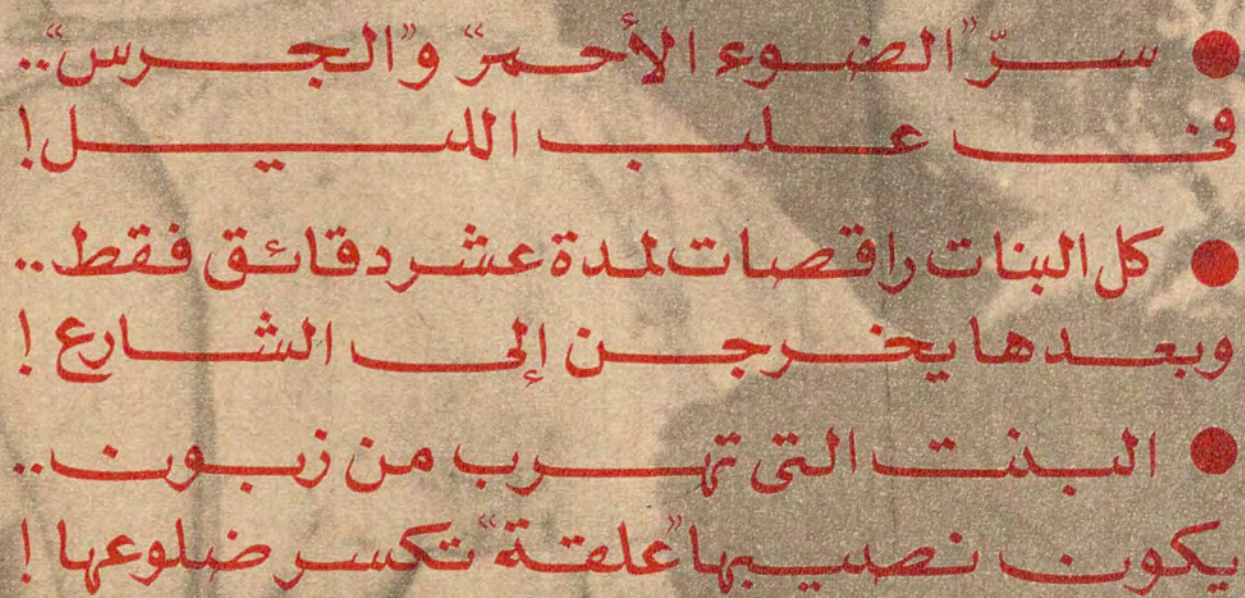 ● سرّ "الضوء الأحمر" و"الجرس"..
فى علب الليل!
● كل البنات راقصات لمدة عشر دقائق فقط..
وبعدها يخرجن إلى الشارع!
● البنت التى تهرب من زبون..
يكون نصيبها "علقة" تكسر ضلوعها!